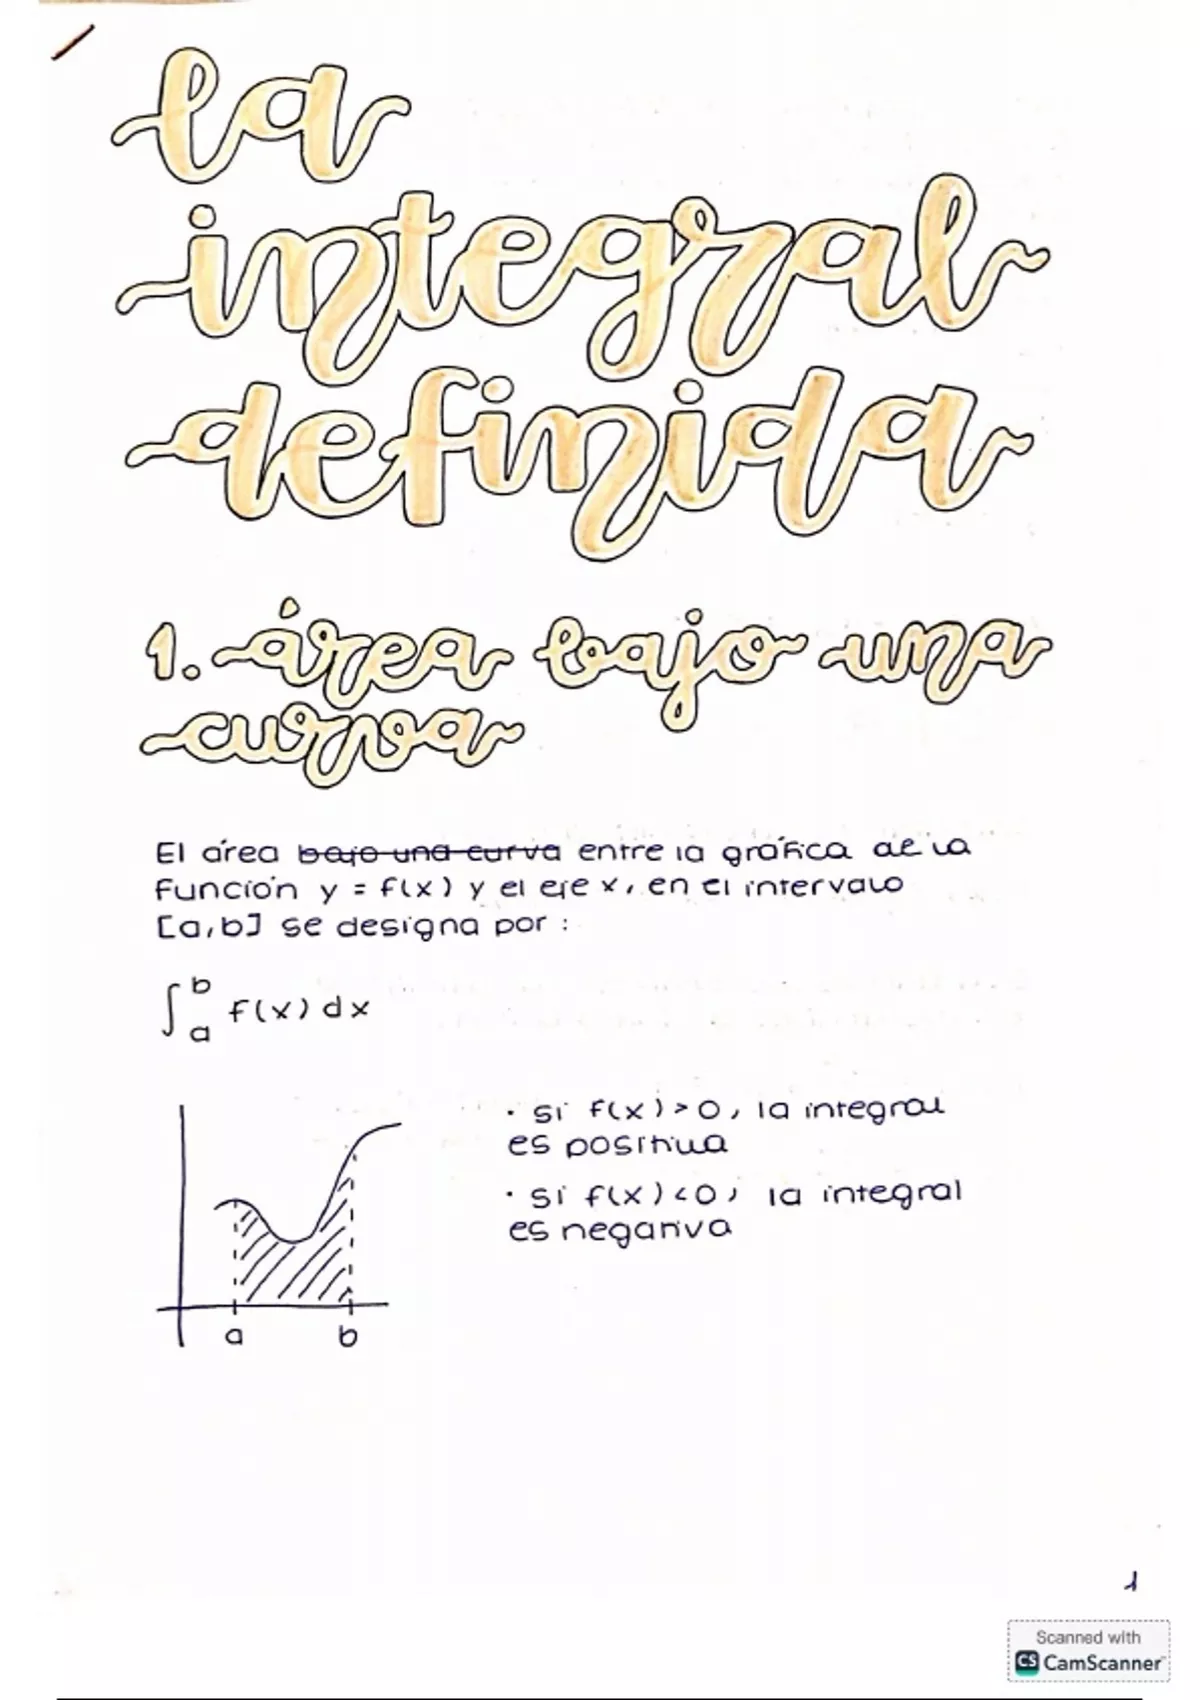 la
integral
definida
1. área bajo una
curva
El área bajo una curva entre la gráfica de la
función y = f(x) y el eje x, en el intervalo
[a,b] se designa por :
∫ₐᵇ f(x) dx
· si f(x) > 0, la integral
es positiva
· si f(x) < 0, la integral
es negativa
a b
1
Scanned with
CS CamScanner